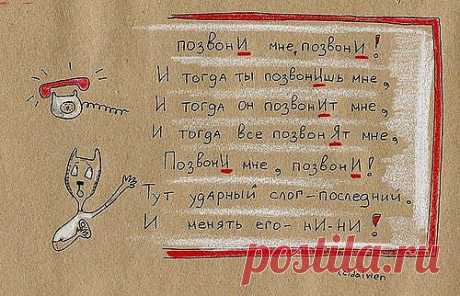 позвонИ мне, позвонИ!
И тогда ты позвонИшь мне,
И тогда он позвонИт мне,
И тогда все позвонЯт мне,
ПозвонИ мне, позвонИ!
Тут ударный слог-последний.
И менять его- нИ-нИ!
postila.ru